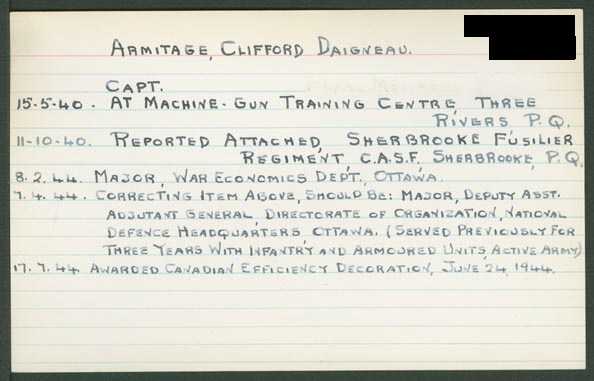 ARMITAGE, CLIFFORD DAIGNEAU.
CAPT.
15.5.40. AT MACHINE-GUN TRAINING CENTRE, THREE
RIVERS P.Q.
11-10-40. REPORTED ATTACHED, SHERBROOKE FUSILIER
REGIMENT, C.A.S.F. SHERBROOKE, P.Q.
8.2.44. MAJOR, WAR ECONOMICS DEPT., OTTAWA.
7.4.44. CORRECTING ITEM ABOVE, SHOULD BE: MAJOR, DEPUTY ASST.
ADJUTANT GENERAL, DIRECTORATE OF ORGANIZATION, NATIONAL
DEFENCE HEADQUARTERS, OTTAWA. (SERVED PREVIOUSLY FOR
THREE YEARS WITH INFANTRY AND ARMOURED UNITS, ACTIVE ARMY)
17.7.44. AWARDED CANADIAN EFFICIENCY DECORATION, JUNE 24, 1944.